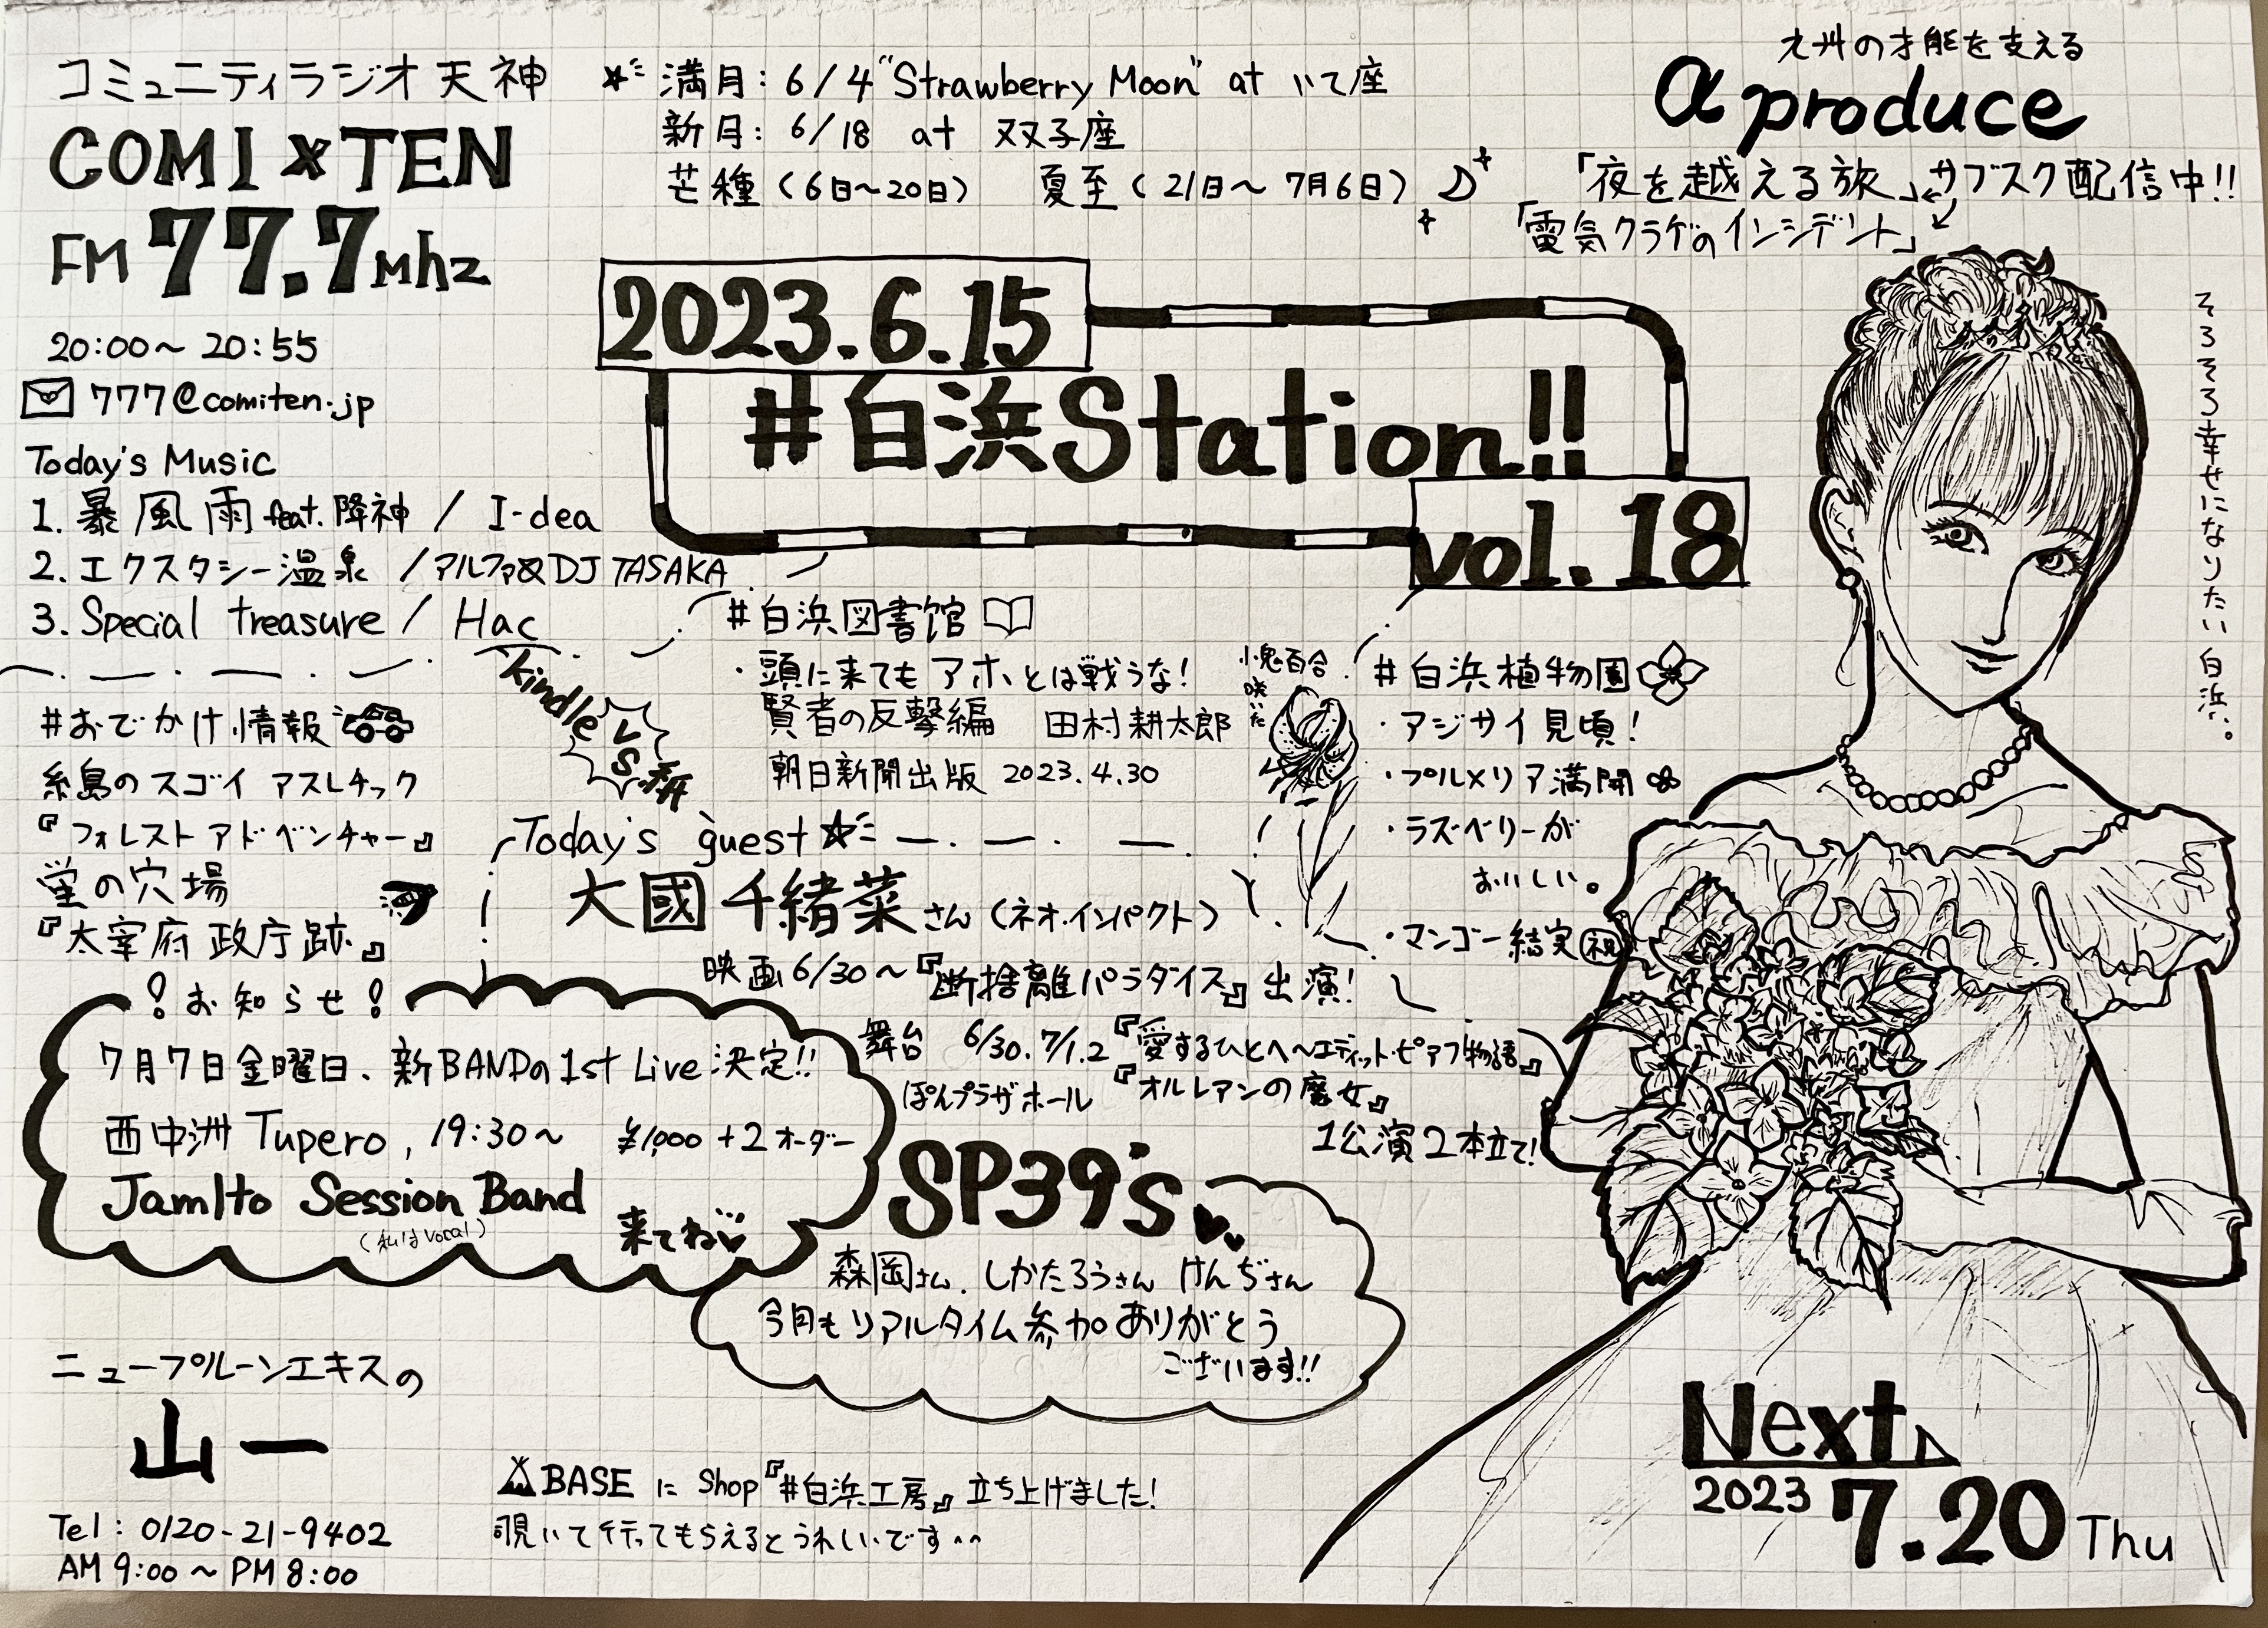 コミュニティラジオ天神
COMI×TEN
FM 77.7Mhz
20:00〜20:55
777@comiten.jp
Today's Music
1. 暴風雨 feat.降神 / I-dea
2. エクスタシー温泉 /アルファ&DJ TASAKA
3. Special treasure / Hac
満月: 6/4 "Strawberry Moon" at いて座
新月: 6/18 at 双子座
芒種(6日〜20日) 夏至(21日〜7月6日)
九州の才能を支える
α produce
「夜を越える旅」サブスク配信中!!
「電気クラゲのインシデント」
2023.6.15
#白浜Station!!
vol.18
そろそろ幸せになりたい白浜。
#おでかけ情報
糸島のスゴイ アスレチック
『フォレストアドベンチャー』
蛍の穴場
『太宰府政庁跡』
#白浜図書館
・頭に来てもアホとは戦うな!
賢者の反撃編 田村耕太郎
朝日新聞出版 2023.4.30
kindle
VS.
紙
小鬼百合
咲いた
#白浜植物園
・アジサイ見頃!
・プルメリア満開
・ラズベリーが
おいしい。
・マンゴー結実 祝
Today's guest
大國千緒菜さん (ネオ.インパクト)
映画6/30〜『断捨離パラダイス』出演!
舞台 6/30.7/1.2『愛するひとへ〜エディット・ピアフ物語』
ぽんプラザホール 『オルレアンの魔女』
1公演2本立て!
!お知らせ!
7月7日金曜日、新BANDの1st Live決定!!
西中洲 Tupero, 19:30〜 ¥1,000+2オーダー
JamIto Session Band
(私はvocal)
来てね
SP39's
森岡さん、しかたろうさん けんぢさん
今月もリアルタイム参加ありがとう
ございます!!
ニュープルーンエキスの
山一
Tel: 0120-21-9402
AM 9:00〜PM 8:00
BASE に Shop『#白浜工房』立ち上げました!
覗いて行ってもらえるとうれしいです^^
Next
2023 7.20 Thu